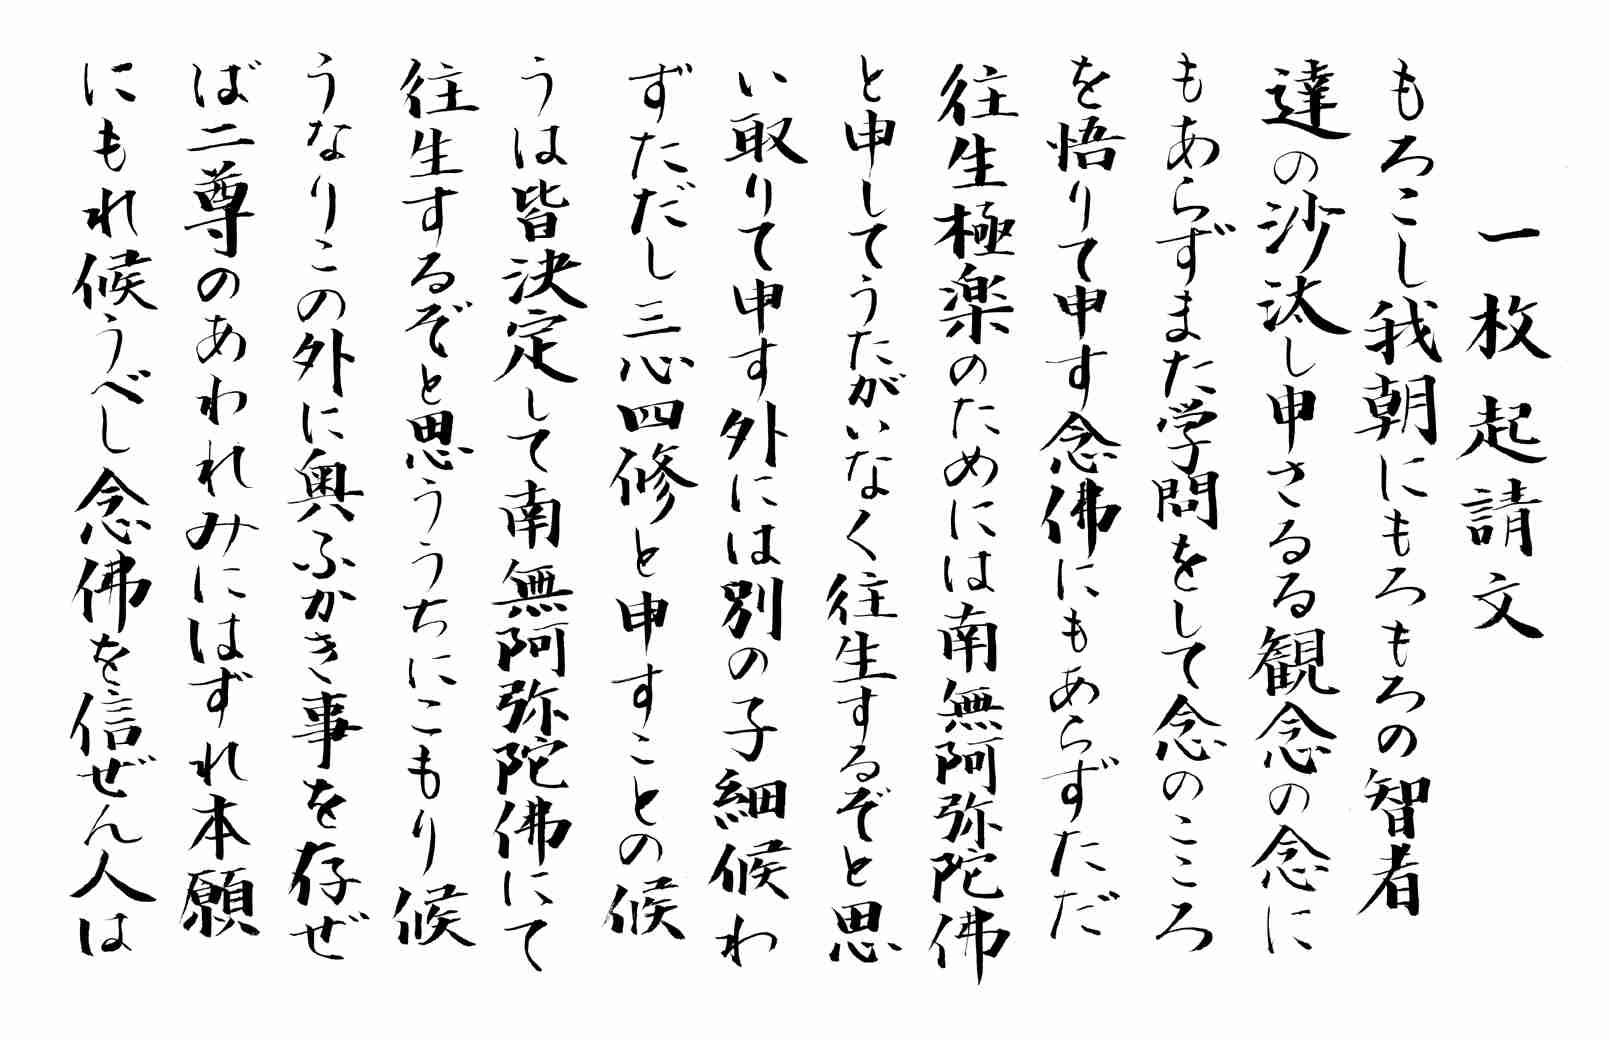 一枚起請文
もろこし我朝にもろもろの智者
達の沙汰し申さるる観念の念に
もあらずまた学問をして念のこころ
を悟りて申す念佛にもあらずただ
往生極楽のためには南無阿弥陀佛
と申してうたがいなく往生するぞと思
い取りて申す外には別の子細候わ
ずただし三心四修と申すことの候
うは皆決定して南無阿弥陀佛にて
往生するぞと思ううちにこもり候
うなりこの外に奥ふかき事を存ぜ
ば二尊のあわれみにはずれ本願
にもれ候うべし念佛を信ぜん人は